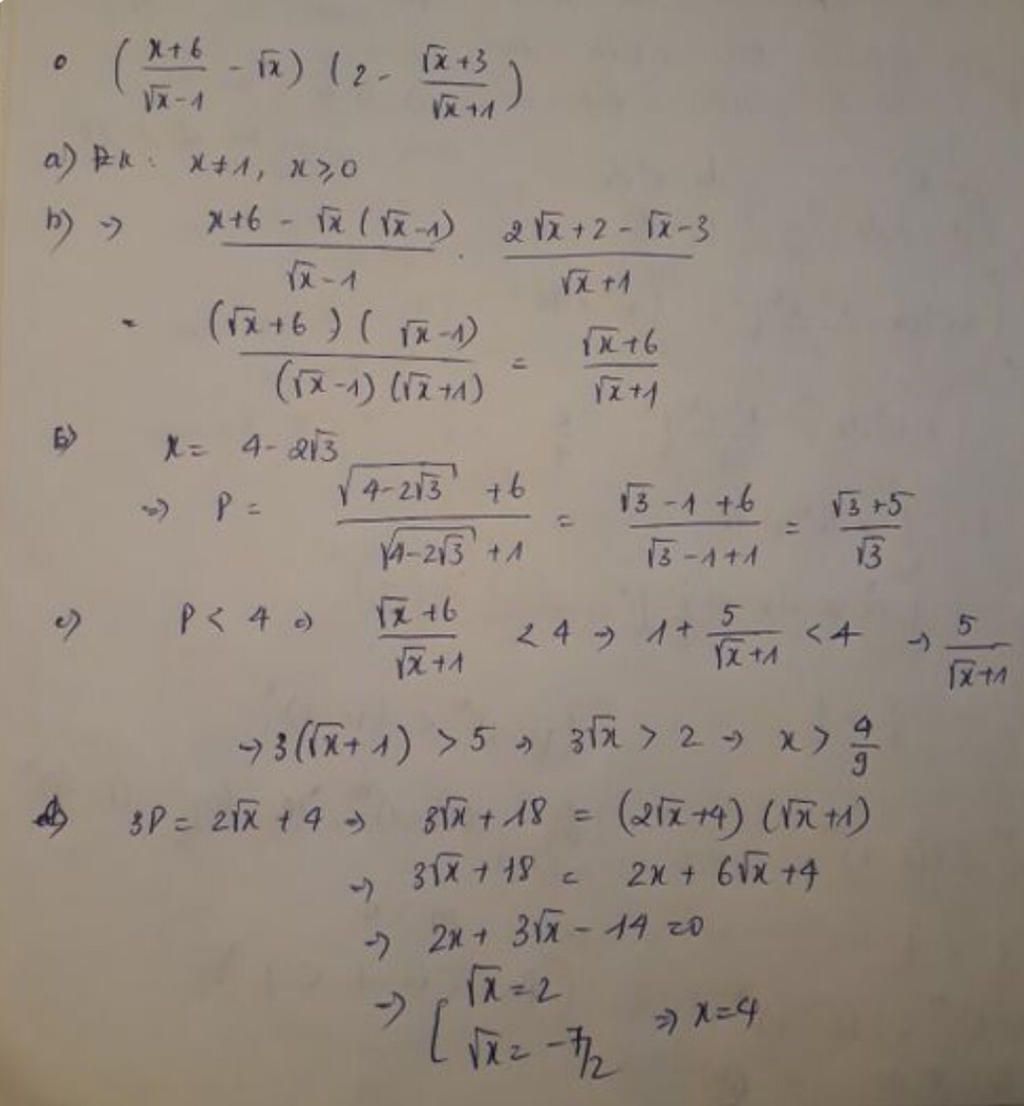 (x+6/√x-1 - √x) (2 - √x+3/√x+1)
a) ĐK: x≠1, x≥0
b) → x+6 - √x(√x-1)/√x-1 . 2√x+2-√x-3/√x+1
= (√x+6)(√x-1)/(√x-1)(√x+1) = √x+6/√x+1
x= 4-2√3
=> P = √4-2√3 +6/√4-2√3 +1 = √3-1+6/√3-1+1 = √3+5/√3
c) P < 4 => √x+6/√x+1 < 4 → 1+ 5/√x+1 < 4 → 5/√x+1
→ 3(√x+1) > 5 → 3√x > 2 → x > 4/9
d) 3P = 2√x + 4 → 3√x + 18 = (2√x+4)(√x+1)
→ 3√x + 18 = 2x + 6√x + 4
→ 2x + 3√x - 14 = 0
→ [ √x = 2
√x = -7/2 => x=4